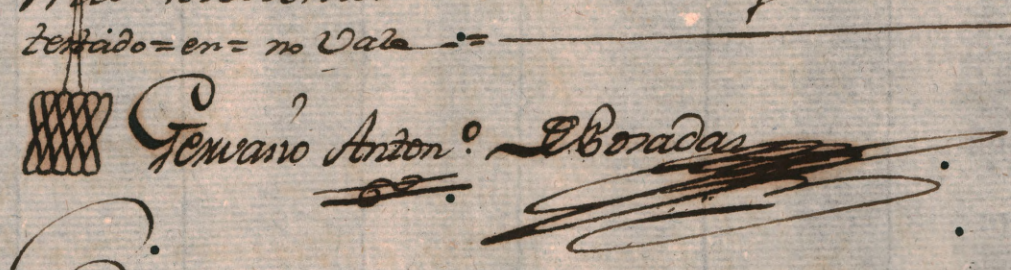 testado=en= no Vale =
Gervasio Anton.o de Posadas